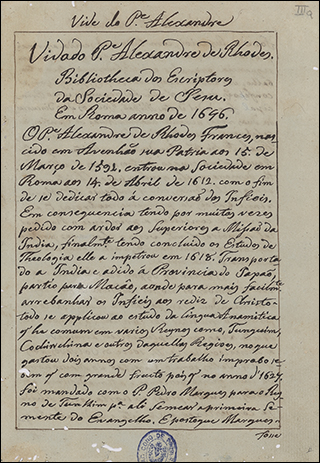 Vide do Pe Alexandre
Vida do P.e Alexandre de Rhodes.
Bibliotheca dos Escriptores
da Sociedade de
Em Roma anno de 1646.
O P.e Alexandre de Rhodes Frances, nas
cido em Avenhão sua Patria aos 15. de
Março de 1591. entrou na Sociedade em
Roma aos 14. de Abril de 1612. com o fim
de se dedicar todo à conversão dos Infieis.
Em consequencia tendo por muitas vezes
pedido com ardor aos Superiores a Missaõ da
India, finalmte tendo concluido os Estudos de
Theologia elle a impetrou em 1618. Transporta
do a India e adido à Provincia do Japaõ,
partio para Macáo, aonde para mais facilmte
arrebanhar os Infieis aos rediz de Christo
todo se applicou ao estudo da Lingua Annamitica
q' he comum em varios Reynos como, Tunquim,
Cochinchina e outros daquellas Regioes, no que
gastou dois annos com um trabalho improbo se
bem q' com grande fructo pois q' no anno d' 1627.
foi mandado com o P. Pedro Marques para o Rey
no de Tunkim pa ali semear a primeira Se
mente do Evangelho, E posto que Marques
fosse